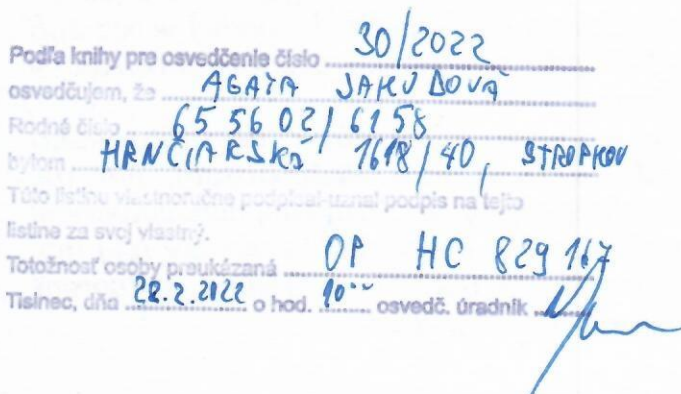 Podľa knihy pre osvedčenie číslo 30/2022
osvedčujem, že AGATA JAKUBOVÁ
Rodné číslo 655602/6158
bytom HRNČIARSKÁ 1618/40, STROPKOV
Túto listinu vlastnoručne podpísal-uznal podpis na tejto
listine za svoj vlastný.
Totožnosť osoby preukázaná OP HC 829 167
Tisinec, dňa 28.2.2022 o hod. 10⁰⁰ osvedč. úradník